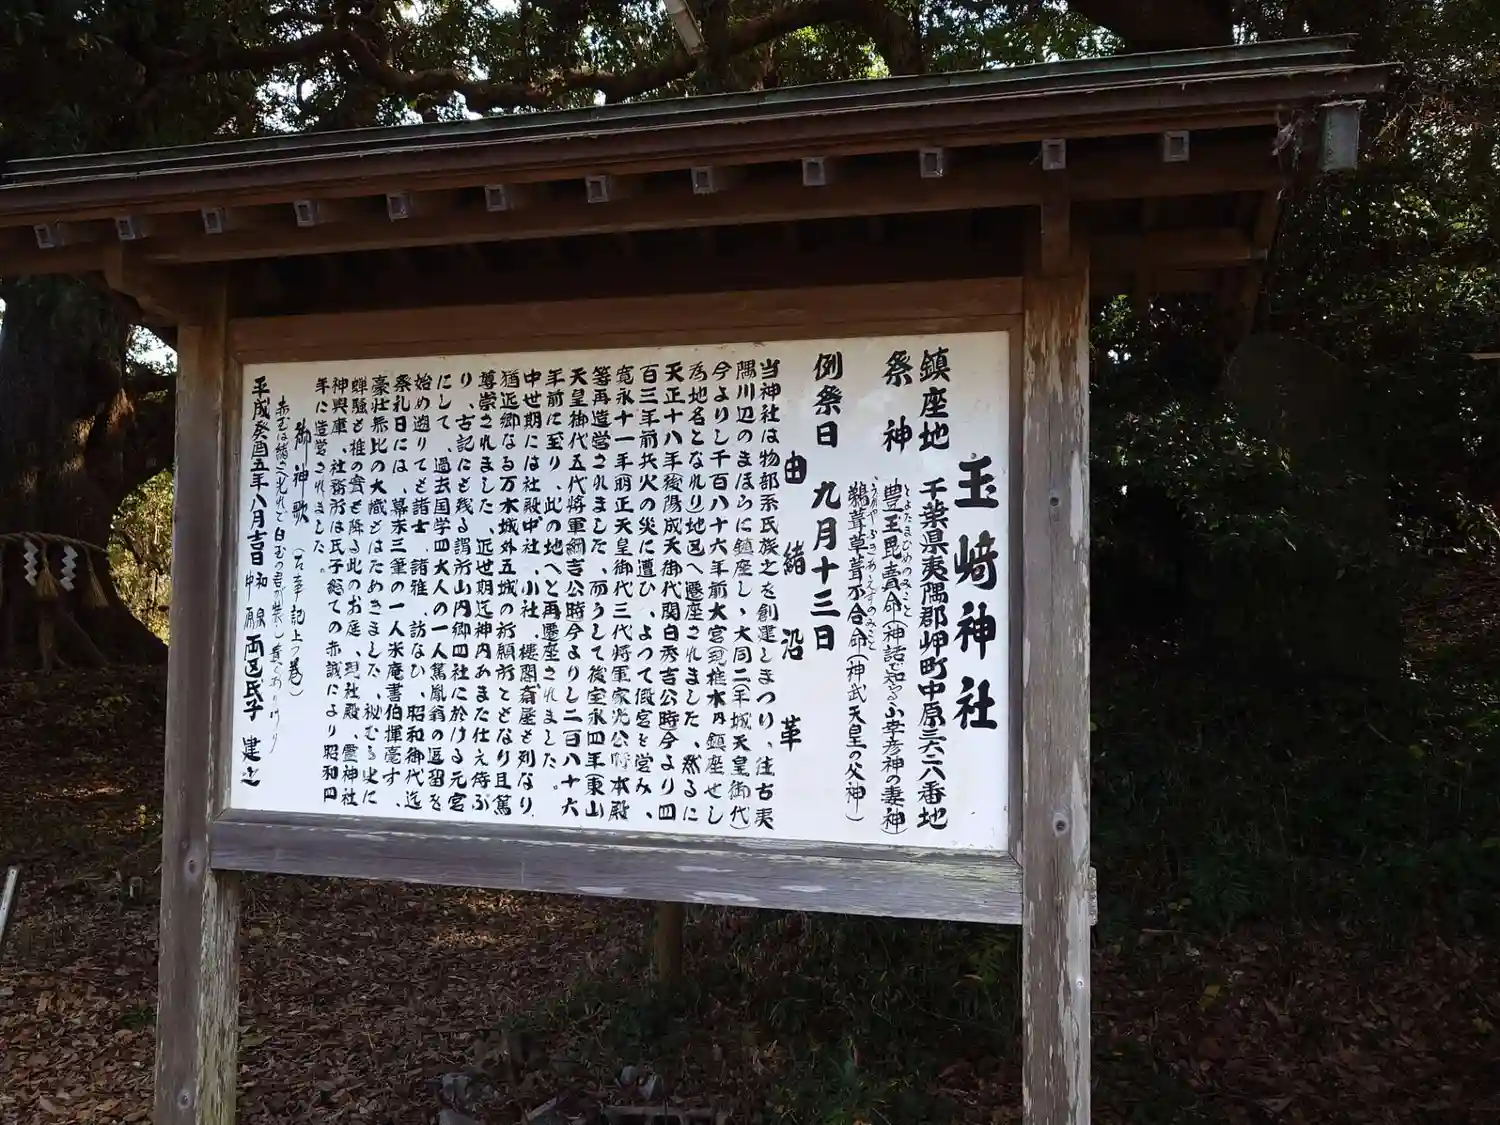 玉﨑神社
鎮座地 千葉県夷隅郡岬町中原三六六番地
祭神 豊玉毘売命(神話で知る山幸彦神の妻神)
とよたまひめのみこと
鵜葺草葺不合命(神武天皇の父神)
うがやふきあえずのみこと
例祭日 九月十三日
由緒沿革
当神社は物部系氏族之を創建しまつり、往古夷
隅川辺のまほらに鎮座し、大同二年(平城天皇御代)
今よりし千百八十六年前大宮(現椎木内鎮座せし
為地名となれり)地区へ遷座されました、然るに
天正十八年後陽成天皇御代関白秀吉公時今より四
百三年前兵火の災に遭ひ、よって仮宮を営み、
寛永十一年明正天皇御代三代将軍家光公時本殿
等再造営されました、而うして後宝永四年東山
天皇御代五代将軍綱吉公時今よりし二百八十六
年前に至り、此の地へと再遷座されました。
中世期には社殿中社、小社、楼閣斎屋も列なり
猶近郷なる万木城外五城の祈願所ともなり且篤
尊崇されました、近世期迄神内あまた仕え侍ぶ
り、古記にも残る謂所山内郷四社に於ける元宮
にして、過去国学四大人の一人篤胤翁の逗留を
始め遡りても諸士、諸雅、訪なひ、昭和御代迄
祭礼日には、幕末三筆の一人米庵書伯揮毫す、
豪壮無比の大幟もはためきました、秘むる史に
蝉騒も椎の實も降る此のお庭、現社殿、霊神社
神輿庫、社務所は氏子総ての赤誠により昭和四
年に造営されました。
御神歌 (古事記上つ巻)
赤玉は緒さへ光れど白玉の君が装し貴くありけり
平成癸酉五年八月吉日 和泉 中原 両区氏子 建之